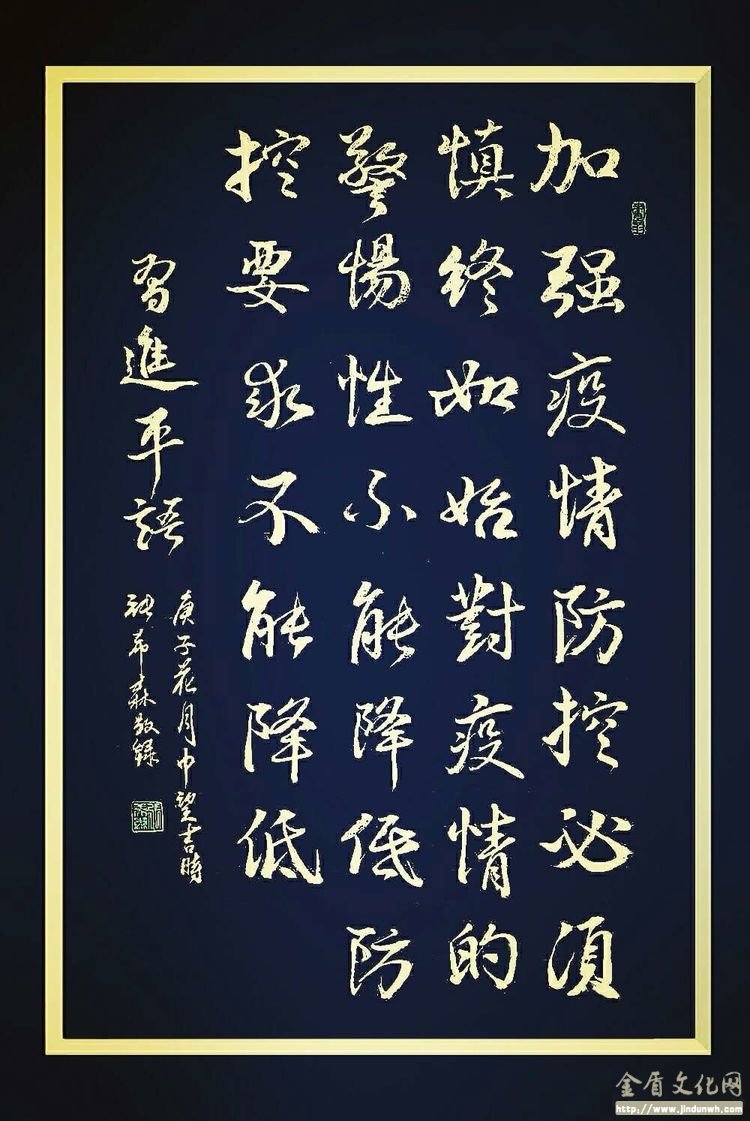 加强疫情防控必须
慎终如始對疫情的
警惕性不能降低防
控要求不能降低
習進平語
庚子花月中望吉時
張希森敬錄
金盾文化网
http://www.jindunwh.com